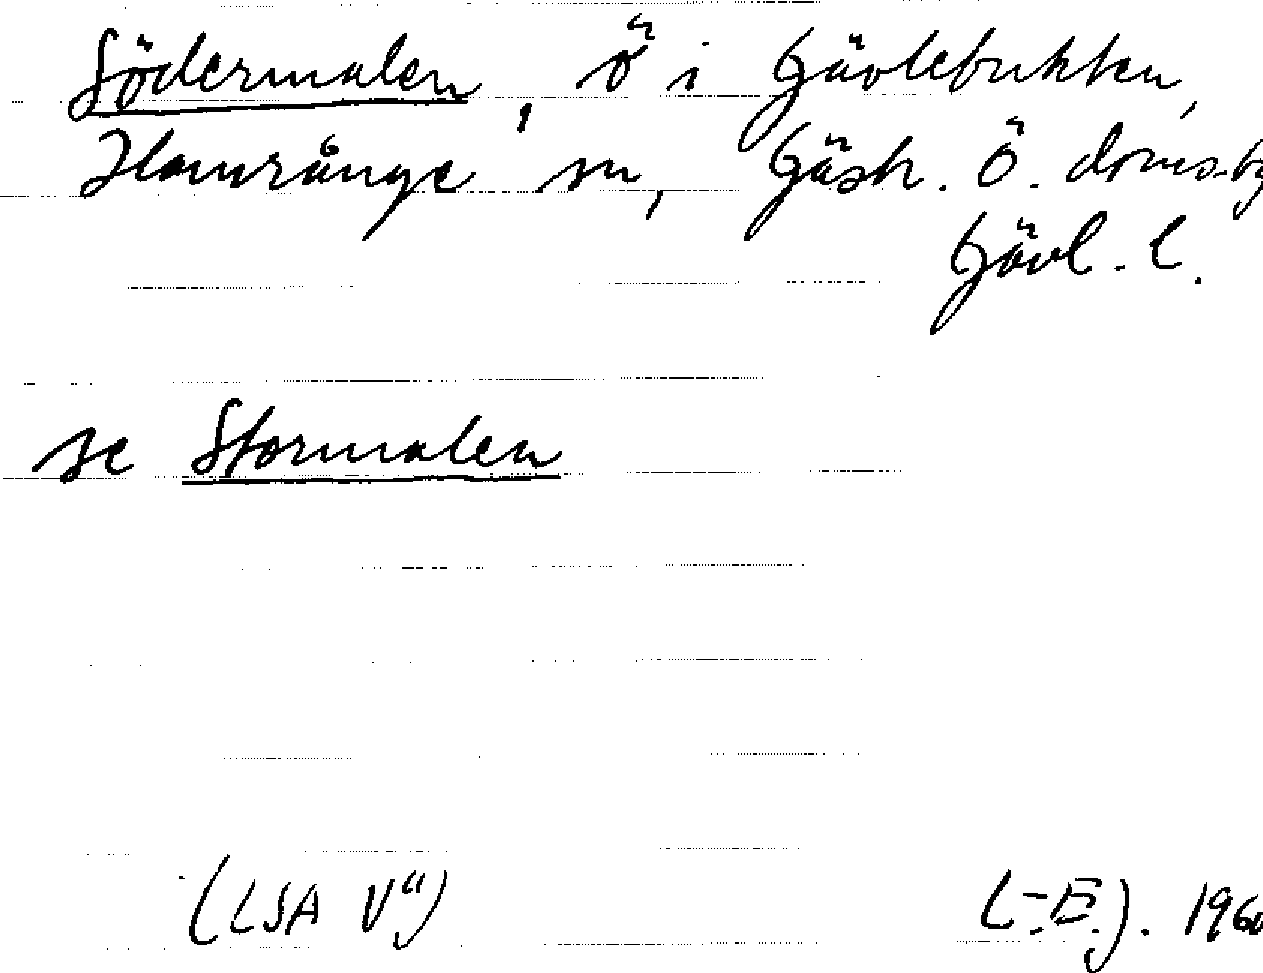 Södermalen, ö i Gävlebukten,
Hamrånge sn, Gästr. Ö. doms.
Gävl. l.
se Stormalen
(LSA V")